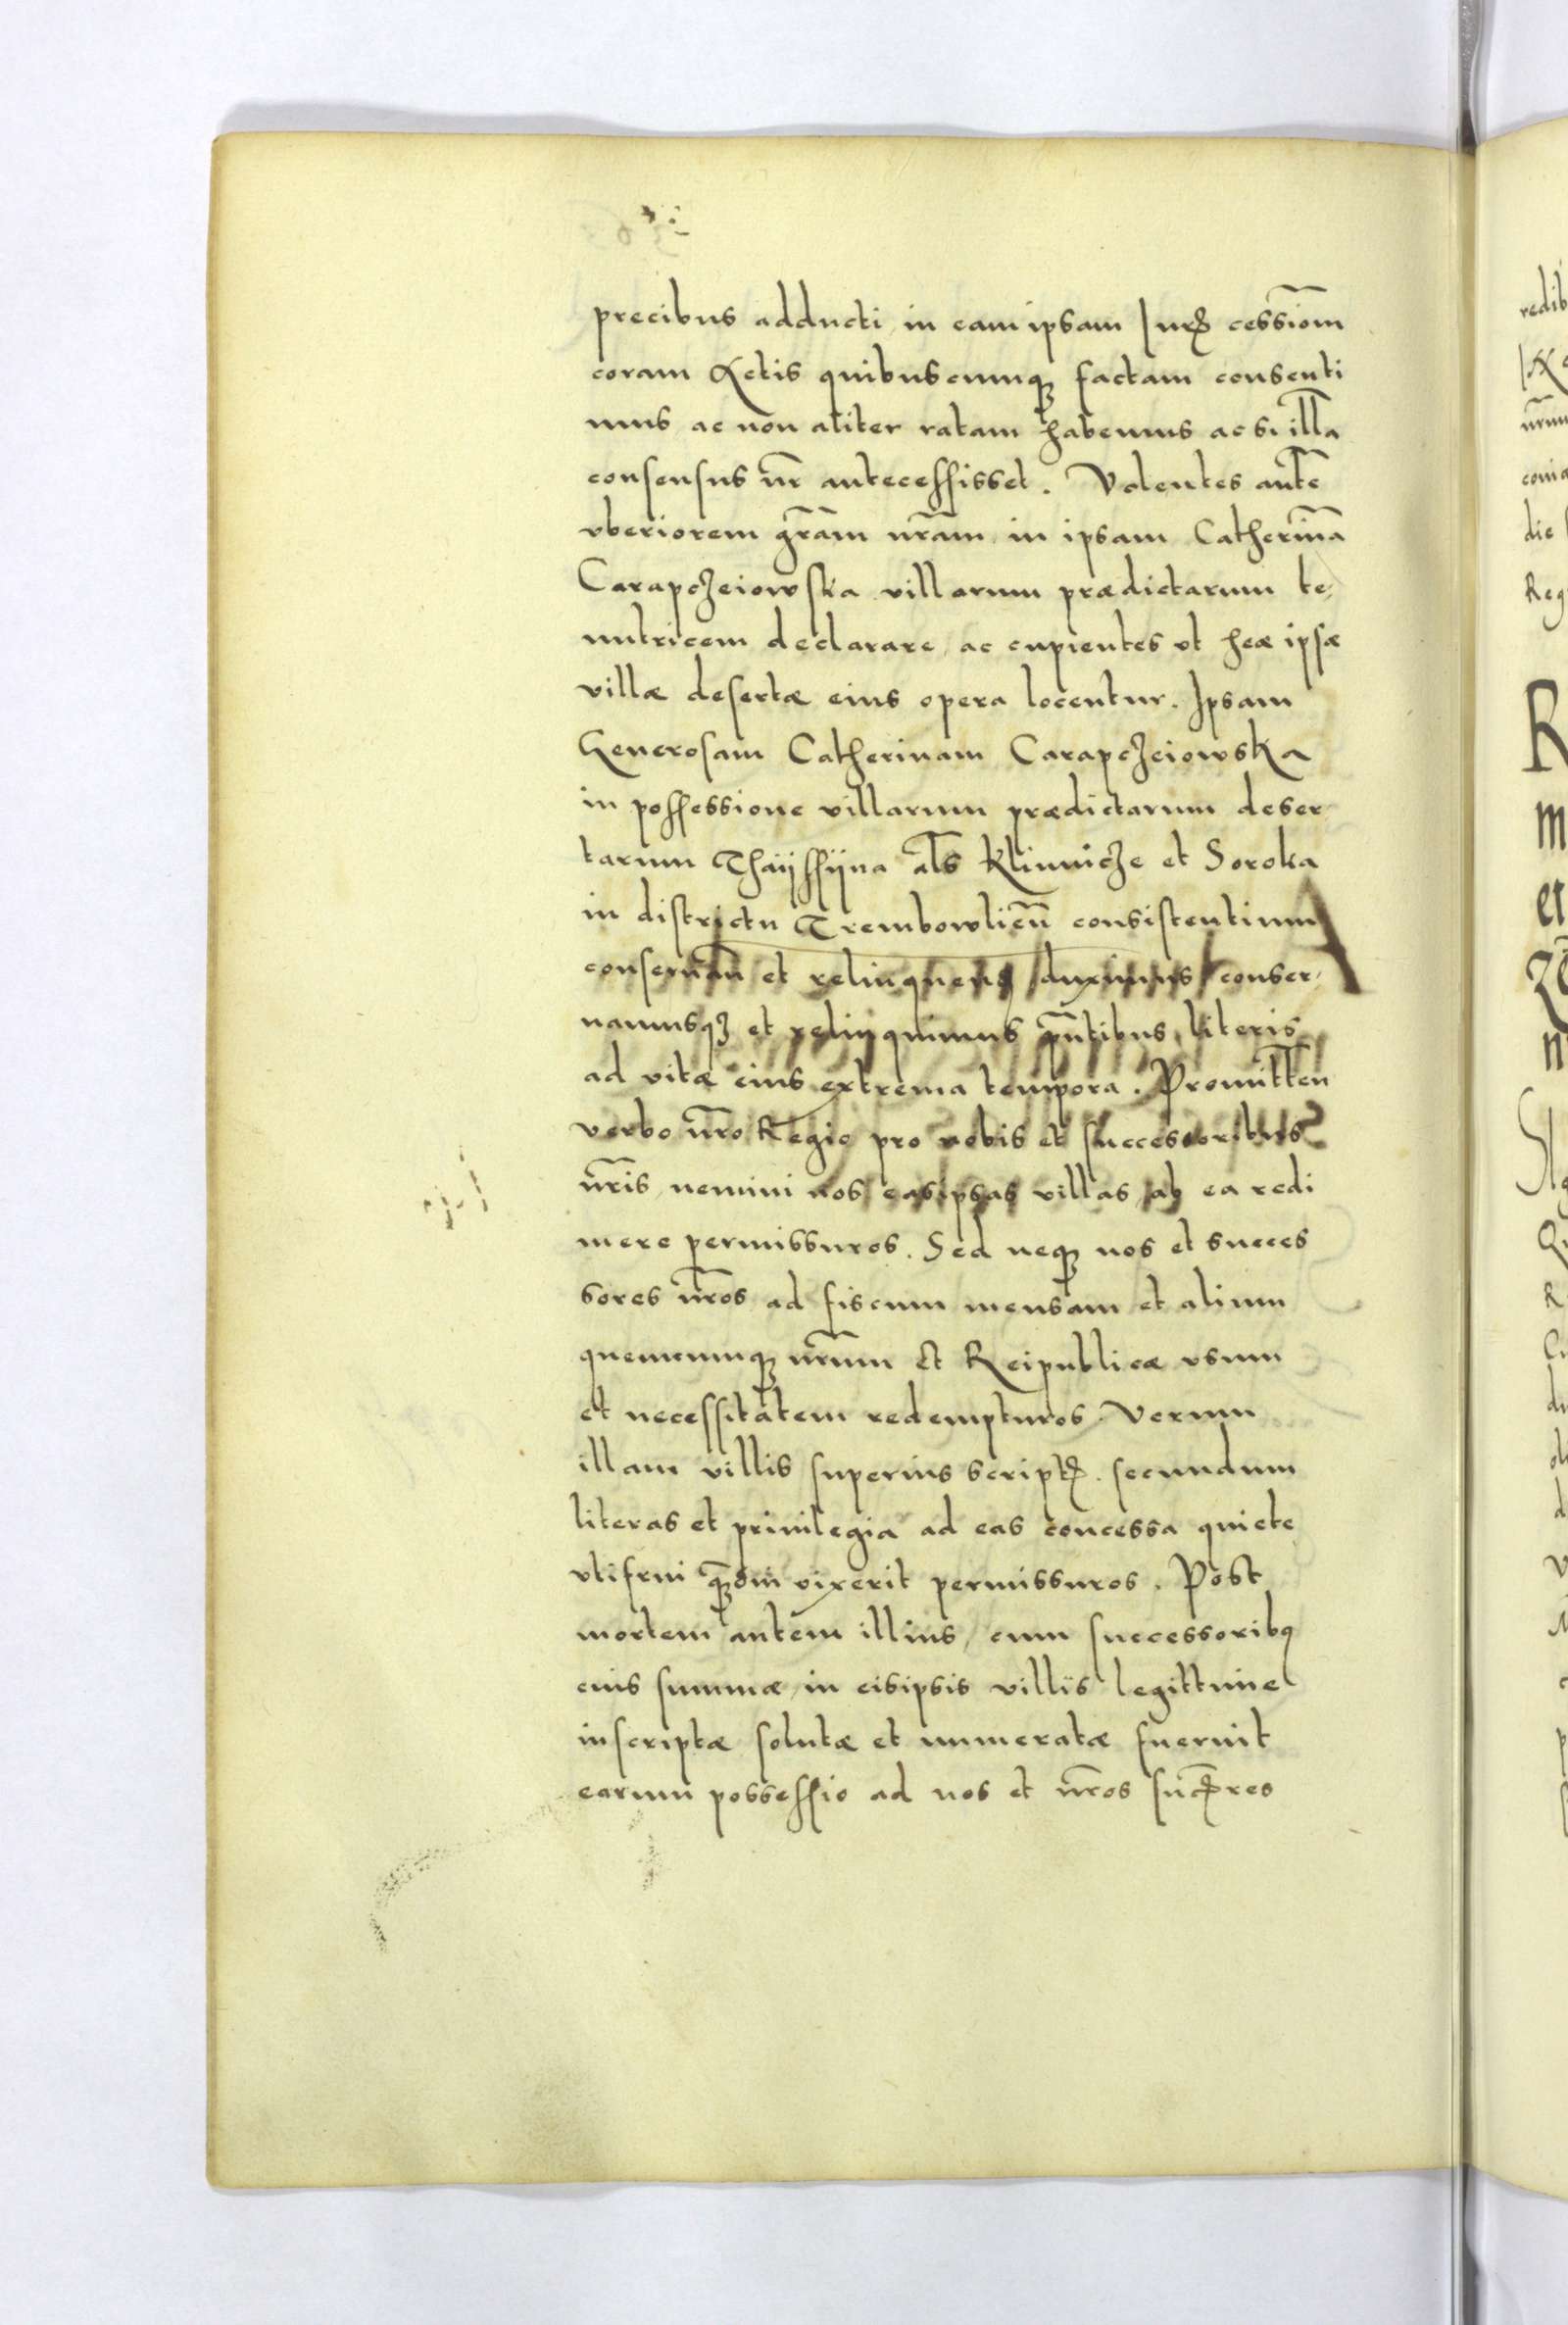 precibus adducti in eam ipsam Iurꝭ cessiōm
coram Actis quibuscumqꝫ factam consenti
mus ac non aliter ratam habemus ac si illā
consensus nr̄ antecessisset. Volentes autē
vberiorem gr̄am nr̄am in ipsam Catherinā
Carapczeiowska villarum prædictarum te,
nutricem declarare, ac cupientes vt heæ ipsæ
villæ desertæ eius opera locentur. Ipsam
Generosam Catherinam Carapczeiowska
in possessione villarum prædictarum deser,
tarum Thaÿssÿna al̄s Klimicze et Soroka
in districtu Trembowlien̄ consistentium
conseruan̄ et relinquenđ duximus conser,
uamusqꝫ et relinquimus pn̄tibus literis
ad vitæ eius extrema tempora. Promitten̄
verbo nr̄o Regio pro nobis et successoribus
nr̄is, nemini nos easipsas villas, ab ea redi
mere permissuros. Sed neqꝫ nos et succes
sores nr̄os ad fiscum mensam et alium
quemcumqꝫ nr̄um et Reipublicæ vsum
et necessitatem redempturos. Verum
illam villis superius scriptꝭ. secundum
literas et priuilegia ad eas concessa quiete
vtifrui qꝫdiu vixerit permissuros. Post
mortem autem illius, cum successoribꝯ
eius summæ, in eisipsis villis legittime
inscriptæ solutæ et numeratæ fuerint
earum possessio ad nos et nr̄os succ̄res